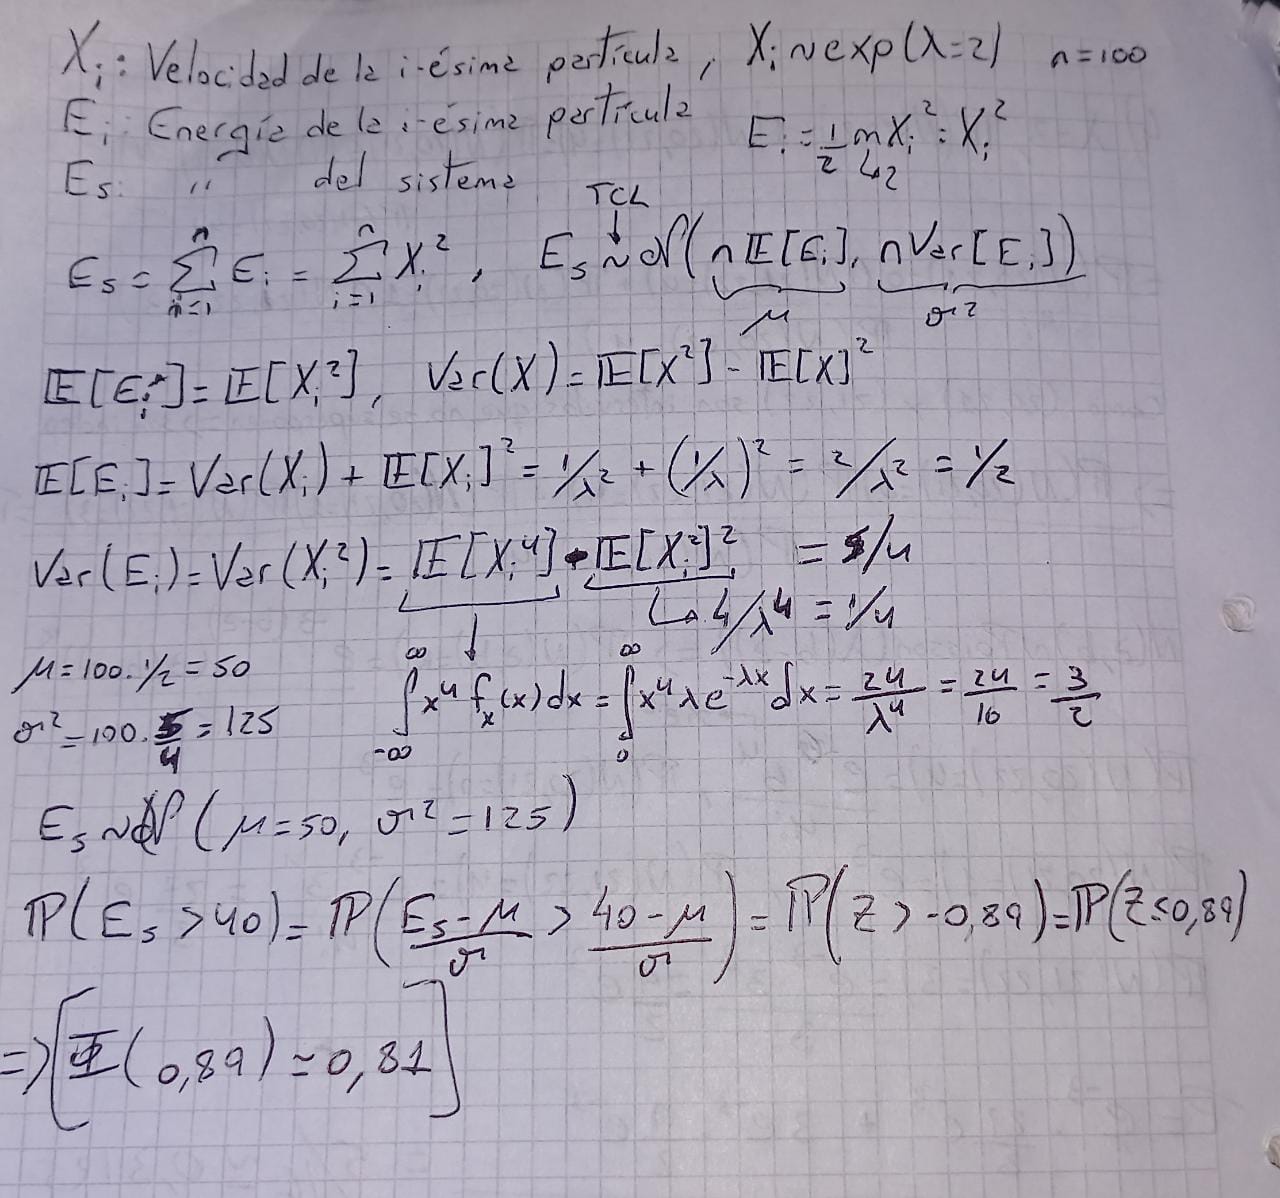 Xi: Velocidad de la i-ésima partícula, Xi ~ exp(λ=2) n=100
Ei: Energía de la i-ésima partícula Ei = 1/2 m Xi² = Xi²
↳2
Es: " del sistema
TCL
↓
Es = Σ_{i=1}^{n} Ei = Σ_{i=1}^{n} Xi², Es ~ N(n𝔼[Ei], nVar[Ei])
μ σ²
𝔼[Ei] = 𝔼[Xi²], Var(X) = 𝔼[X²] - 𝔼[X]²
𝔼[Ei] = Var(Xi) + 𝔼[Xi]² = 1/λ² + (1/λ)² = 2/λ² = 1/2
Var(Ei) = Var(Xi²) = 𝔼[Xi⁴] - 𝔼[Xi²]² = 5/4
↳ 4/λ⁴ = 1/4
μ = 100 . 1/2 = 50
∫_{-∞}^{∞} x⁴ f_x(x) dx = ∫_{0}^{∞} x⁴ λe^{-λx} dx = 24/λ⁴ = 24/16 = 3/2
σ² = 100 . 5/4 = 125
Es ~ N(μ=50, σ²=125)
ℙ(Es > 40) = ℙ((Es - μ)/σ > (40 - μ)/σ) = ℙ(Z > -0,89) = ℙ(Z ≤ 0,89)
=> [Φ(0,89) ≃ 0,81]